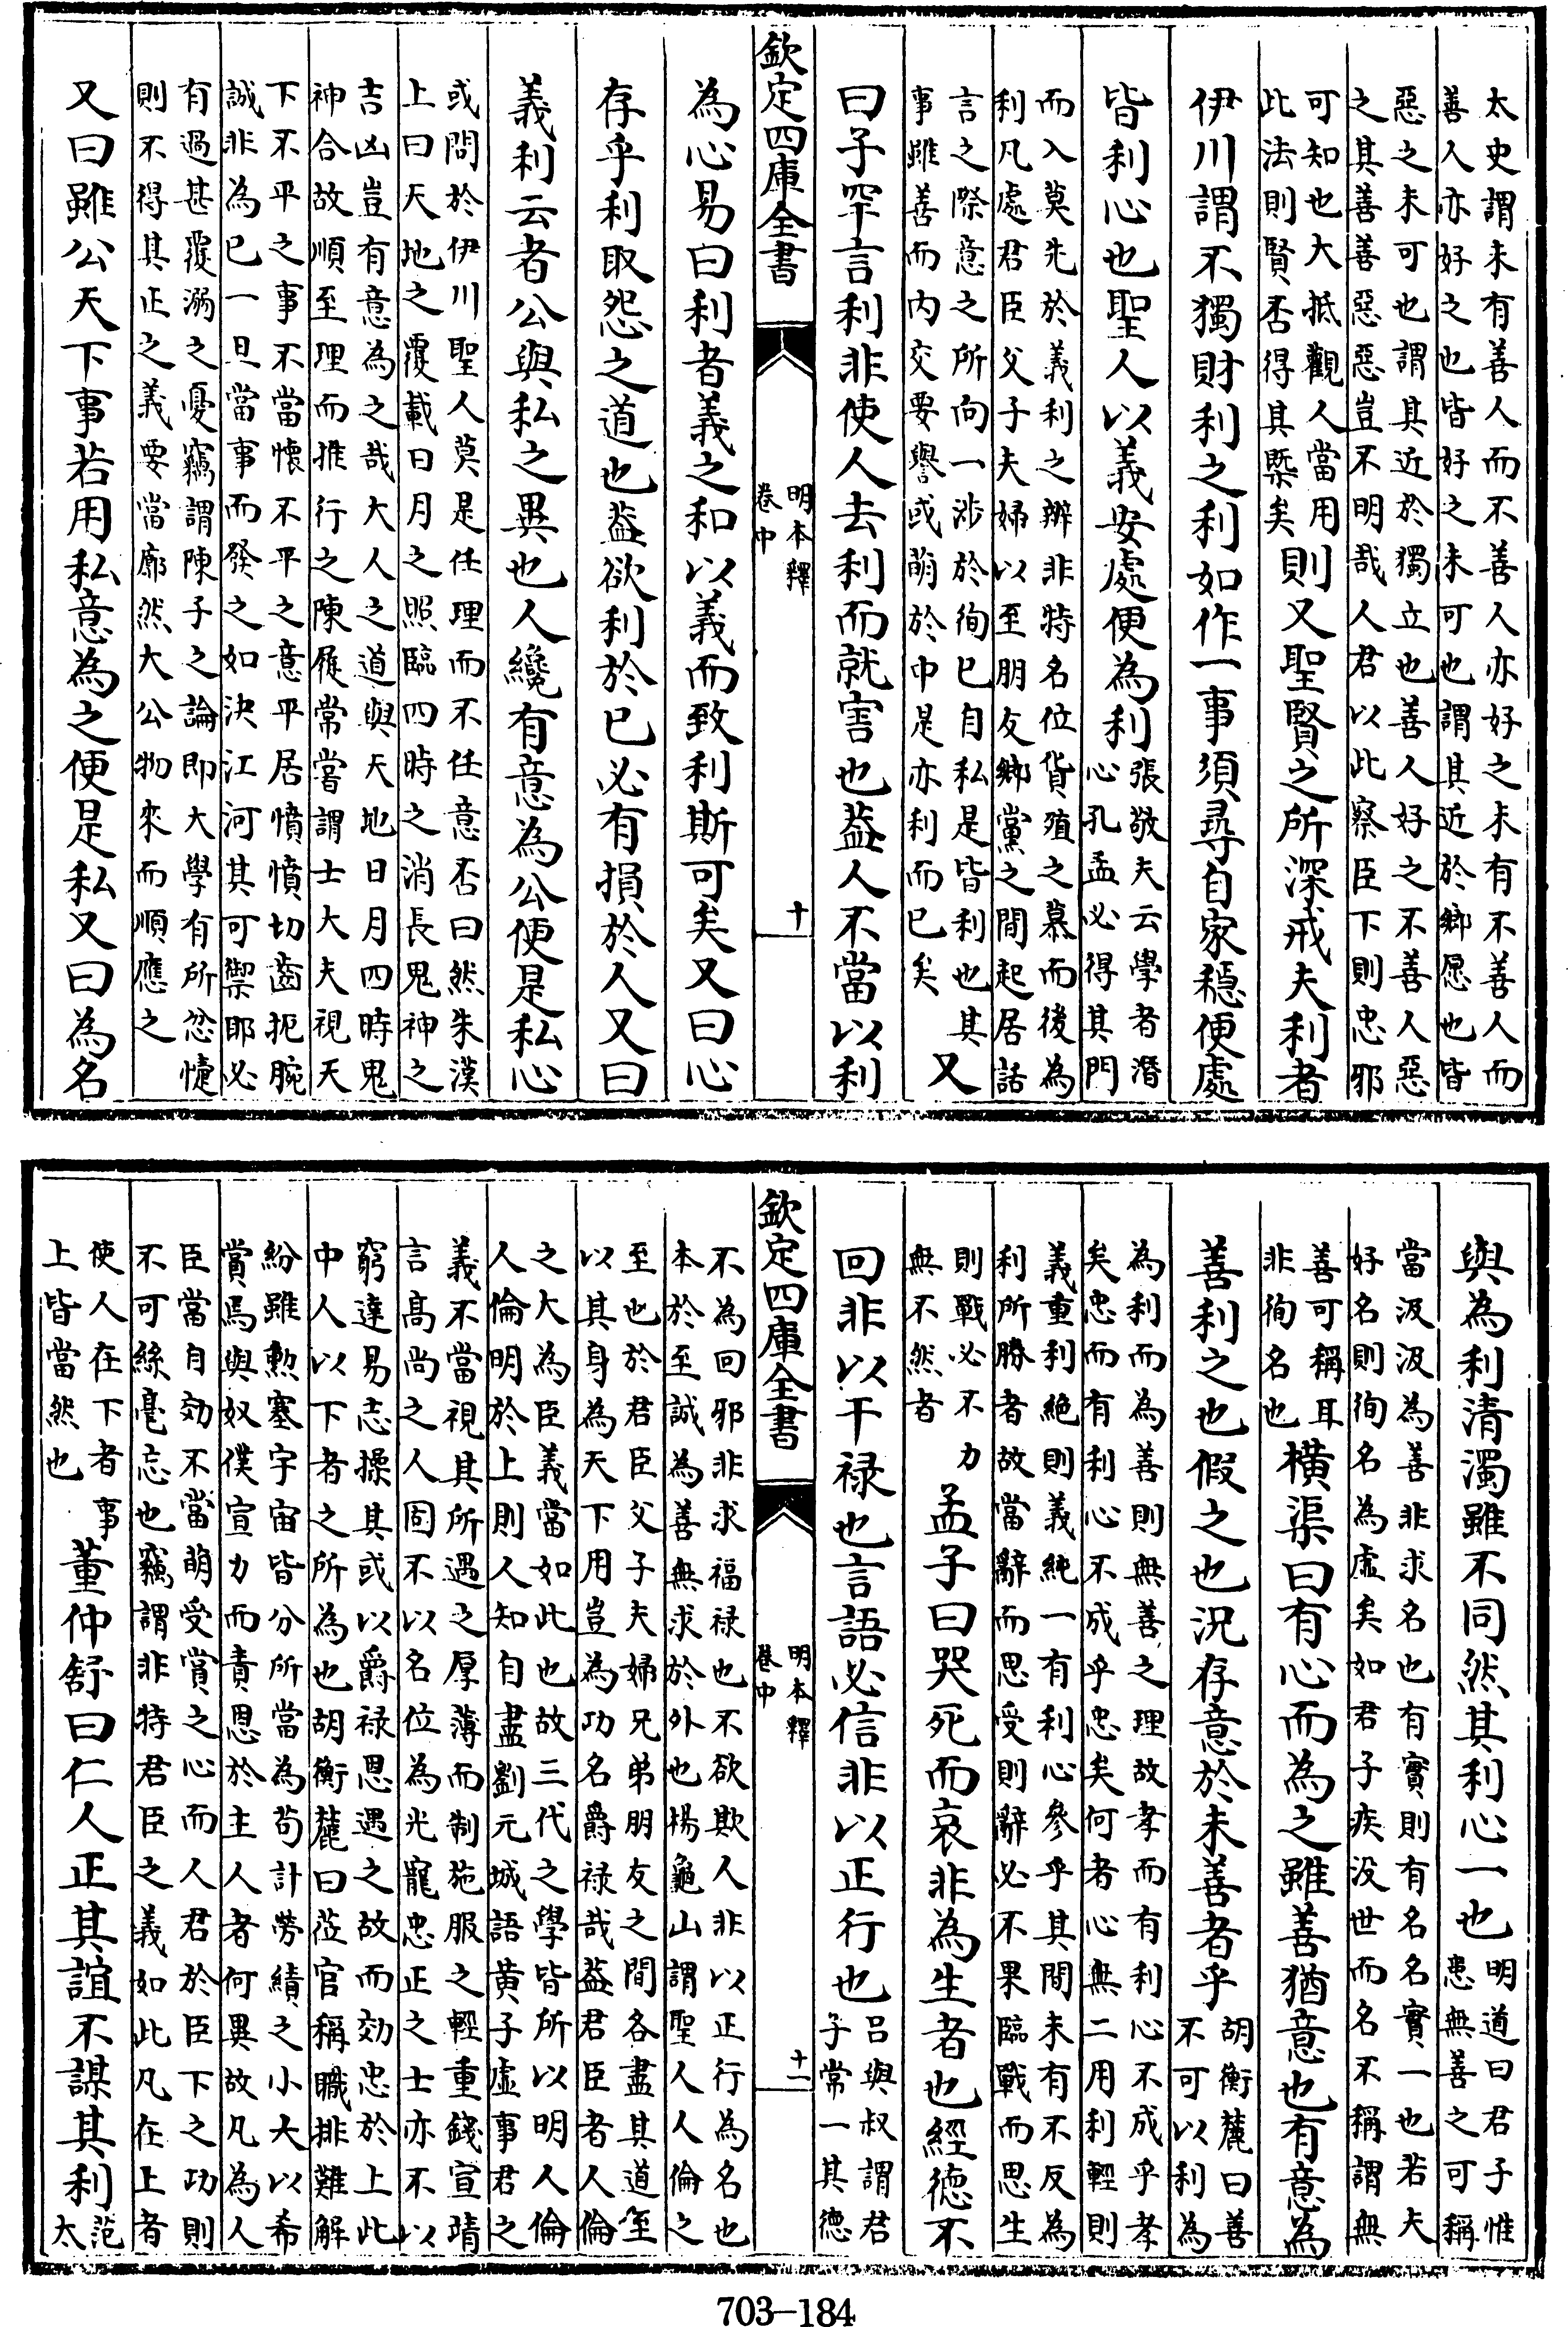 太史謂未有善人而不善人亦好之未有不善人而
善人亦好之也皆好之未可也謂其近於鄉愿也皆
惡之未可也謂其近於獨立也善人好之不善人惡
之其善善惡惡豈不明哉人君以此察臣下則忠邪
可知也大抵觀人當用
此法則賢否得其槩矣則又聖賢之所深戒夫利者
伊川謂不獨財利之利如作一事須尋自家穩便處
皆利心也聖人以義安處便為利張敬夫云學者潛
心孔孟必得其門
而入莫先於義利之辨非特名位貨殖之慕而後為
利凡處君臣父子夫婦以至朋友鄉黨之間起居話
言之際意之所向一涉於徇已自私是皆利也其
事雖善而內交要譽或萌於中是亦利而已矣又
曰子罕言利非使人去利而就害也葢人不當以利
欽定四庫全書
明本釋
卷中
十
為心易曰利者義之和以義而致利斯可矣又曰心
存乎利取怨之道也葢欲利於已必有損於人又曰
義利云者公與私之異也人纔有意為公便是私心
或問於伊川聖人莫是任理而不任意否曰然朱漢
上曰天地之覆載日月之照臨四時之消長鬼神之
吉凶豈有意為之哉大人之道與天地日月四時鬼
神合故順至理而推行之陳履常嘗謂士大夫視天
下不平之事不當懷不平之意平居憤憤切齒扼腕
誠非為已一旦當事而發之如決江河其可禦耶必
有過甚覆溺之憂竊謂陳子之論即大學有所忿懥
則不得其正之義要當廓然大公物來而順應之
又曰雖公天下事若用私意為之便是私又曰為名
與為利清濁雖不同然其利心一也明道曰君子惟
患無善之可稱
當汲汲為善非求名也有實則有名名實一也若夫
好名則徇名為虛矣如君子疾没世而名不稱謂無
善可稱耳
非徇名也橫渠曰有心而為之雖善猶意也有意為
善利之也假之也況存意於未善者乎胡衡麓曰善
不可以利為
為利而為善則無善之理故孝而有利心不成乎孝
矣忠而有利心不成乎忠矣何者心無二用利輕則
義重利絶則義純一有利心參乎其間未有不反為
利所勝者故當辭而思受則辭必不果臨戰而思生
則戰必不力
無不然者孟子曰哭死而哀非為生者也經德不
回非以干禄也言語必信非以正行也吕與叔謂君
子常一其德
欽定四庫全書
明本釋
卷中
十一
不為回邪非求福禄也不欲欺人非以正行為名也
本於至誠為善無求於外也楊龜山謂聖人人倫之
至也於君臣父子夫婦兄弟朋友之間各盡其道至
以其身為天下用豈為功名爵禄哉葢君臣者人倫
之大為臣義當如此也故三代之學皆所以明人倫
人倫明於上則人知自盡劉元城語黄子虛事君之
義不當視其所遇之厚薄而制施服之輕重錢宣靖
言高尚之人固不以名位為光寵忠正之士亦不以
窮達易志操其或以爵禄恩遇之故而効忠於上此
中人以下者之所為也胡衡麓曰蒞官稱職排難解
紛雖勲塞宇宙皆分所當為苟計勞績之小大以希
賞焉與奴僕宣力而責恩於主人者何異故凡為人
臣當自効不當萌受賞之心而人君於臣下之功則
不可絲毫忘也竊謂非特君臣之義如此凡在上者
使人在下者事
上皆當然也董仲舒曰仁人正其誼不謀其利范
太
703—184